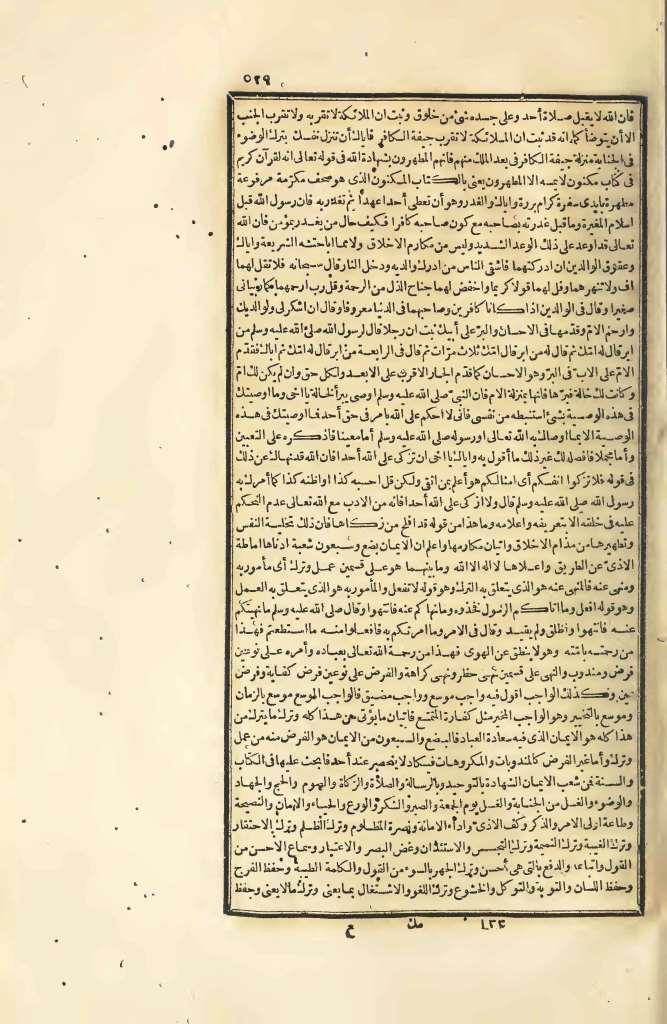 ٥٢٩
فان الله لا يقبل صلاة أحد وعلى جسده شئ من خلوق وثبت ان الملائكة لا تقربه ولا تقرب الجنب
الا أن يتوضأ كما انه قد ثبت ان الملائكة لا تقرب جيفة الكافر فاياك أن تنزل نفسك بترك الوضوء
فى الجنابة منزلة جيفة الكافر فى بعد الملك منهم فانهم المطهرون بشهادة الله فى قوله تعالى انه لقرآن كريم
فى كتاب مكنون لا يمسه الا المطهرون يعنى بالكتاب المكنون الذى هو صحف مكرّمة مرفوعة
مطهرة بايدى سفرة كرام بررة واياك والغدر وهو أن تعطى أحدا عهدا ثم تغدر به فان رسول الله قبل
اسلام المغيرة وما قبل غدرته بصاحبه مع كون صاحبه كافرا فكيف حال من يغدر بمؤمن فان الله
تعالى قد أوعد على ذلك الوعيد الشديد وليس من مكارم الاخلاق ولا مما اباحته الشريعة واياك
وعقوق الوالدين ان ادركتهما فاشقى الناس من ادرك والديه ودخل النار قال سبحانه فلا تقل لهما
اف ولا تنهرهما وقل لهما قولا كريما واخفض لهما جناح الذل من الرحمة وقل رب ارحمهما كما ربيانى
صغيرا وقال فى الوالدين اذا كانا كافرين وصاحبهما فى الدنيا معروفا وقال ان اشكر لى ولوالديك
وارحم الامّ وقدّمها فى الاحسان والبرّ على أبيك ثبت ان رجلا قال لرسول الله صلى الله عليه وسلم من
ابر قال له امّك ثم قال له من ابر قال امّك ثلاث مرّات ثم قال فى الرابعة من ابر قال له امّك ثم اباك فقدّم
الامّ على الاب فى البرّ وهو الاحسان كما قدّم الجار الاقرب على الابعد ولكل حق وان لم يكن لك امّ
وكانت لك خالة فبرّها فانها بمنزلة الام فان النبىّ صلى الله عليه وسلم أوصى ببر الخالة يا اخى وما اوصيتك
فى هذه الوصية بشئ استنبطه من نفسى فانى لا احكم على الله بامر فى حق أحد فما اوصيتك فى هذه
الوصية الا بما اوصاك به الله تعالى او رسوله صلى الله عليه وسلم أما معينا فاذكره على التعيين
وأما مجملا فافصله لك غير ذلك ما أقول به واياك يا اخى ان تزكى على الله أحدا فان الله قد نهاك عن ذلك
فى قوله فلا تزكوا انفسكم أى امثالكم هو أعلم بمن اتقى ولكن قل احسبه كذا واظنه كذا كما أمرك به
رسول الله صلى الله عليه وسلم قال ولا ازكى على الله أحدا فانه من الادب مع الله تعالى عدم التحكم
عليه فى خلقه الا بتعريفه واعلامه وما هذا من قوله قد افلح من زكاها فان ذلك تحلية النفس
وتطهيرها من مذامّ الاخلاق واتيان مكارمها واعلم ان الايمان بضع وسبعون شعبة ادناها اماطة
الاذى عن الطريق واعلاها لا اله الا الله وما بينهما هو على قسمين عمل وترك أى مأمور به
ومنهى عنه فالمنهى عنه هو الذى يتعلق به الترك وهو قوله لا تفعل والمأمور به هو الذى يتعلق به العمل
وهو قوله افعل وما آتاكم الرسول فخذوه وما نهاكم عنه فانتهوا وقال صلى الله عليه وسلم ما نهيتكم
عنه فانتهوا واطلق ولم يقيد وقال فى الامر وما امرتكم به فافعلوا منه ما استطعتم فهذا
من رحمته بامّته وهو لا ينطق عن الهوى فهذا من رحمة الله تعالى بعباده وأمره على نوعين
فرض ومندوب والنهى على قسمين نهى حظر ونهى كراهة والفرض على نوعين فرض كفاية وفرض
عين وكذلك الواجب اقول فيه واجب موسع وواجب مضيق فالواجب الموسع موسع بالزمان
وموسع بالتخيير وهو الواجب المخير مثل كفارة المتمتع فاتيان ما يؤتى من هذا كله وترك ما يترك من
هذا كله هو الايمان الذى فيه سعادة العباد فالبضع والسبعون من الايمان هو الفرض منه من عمل
وترك وأما غير الفرض كالمندوبات والمكروهات فيكاد لا ينحصر عند أحد فابحث عليها فى الكتاب
والسنة فمن شعب الايمان الشهادة بالتوحيد وبالرسالة والصلاة والزكاة والصوم والحج والجهاد
والوضوء والغسل من الجنابة والغسل يوم الجمعة والصبر والشكر والورع والحياء والامان والنصيحة
وطاعة اولى الامر والذكر وكف الاذى واداء الامانة ونصرة المظلوم وترك الظلم وترك الاحتقار
وترك الغيبة وترك النميمة وترك التجسس والاستئذان وغض البصر والاعتبار وسماع الاحسن من
القول واتباعه والدفع بالتى هى أحسن وترك الجهر بالسوء من القول والكلمة الطيبة وحفظ الفرج
وحفظ اللسان والتوبة والتوكل والخشوع وترك اللغو والاشتغال بما يعنى وترك ما لا يعنى وحفظ
مك ع